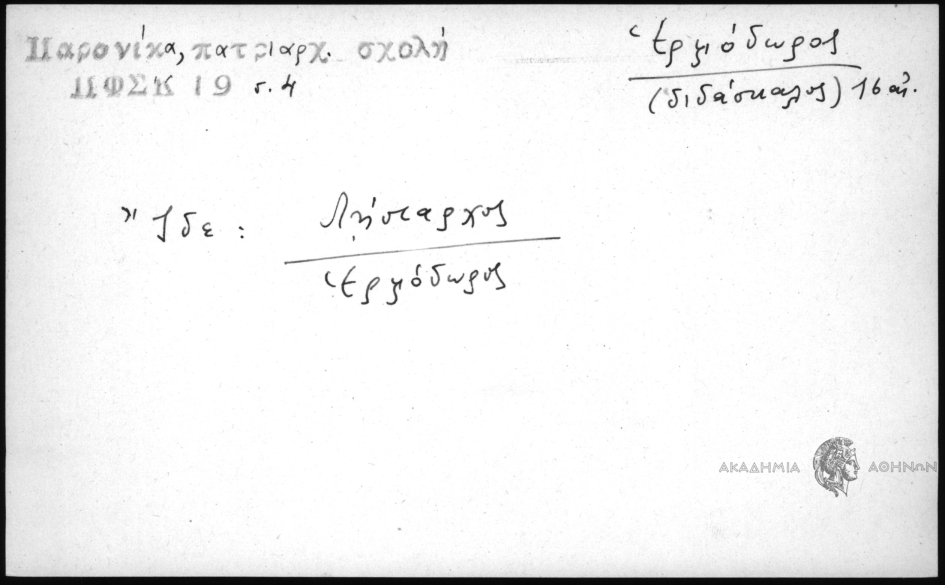 Παρονίκα, πατριαρχ. σχολή
ΠΦΣΚ 19 σ. 4
Ἑρμόδωρος
(διδάσκαλος) 16 αἰ.
Ἴδε : Λήσταρχος
Ἑρμόδωρος
ΑΚΑΔΗΜΙΑ ΑΘΗΝΩΝ